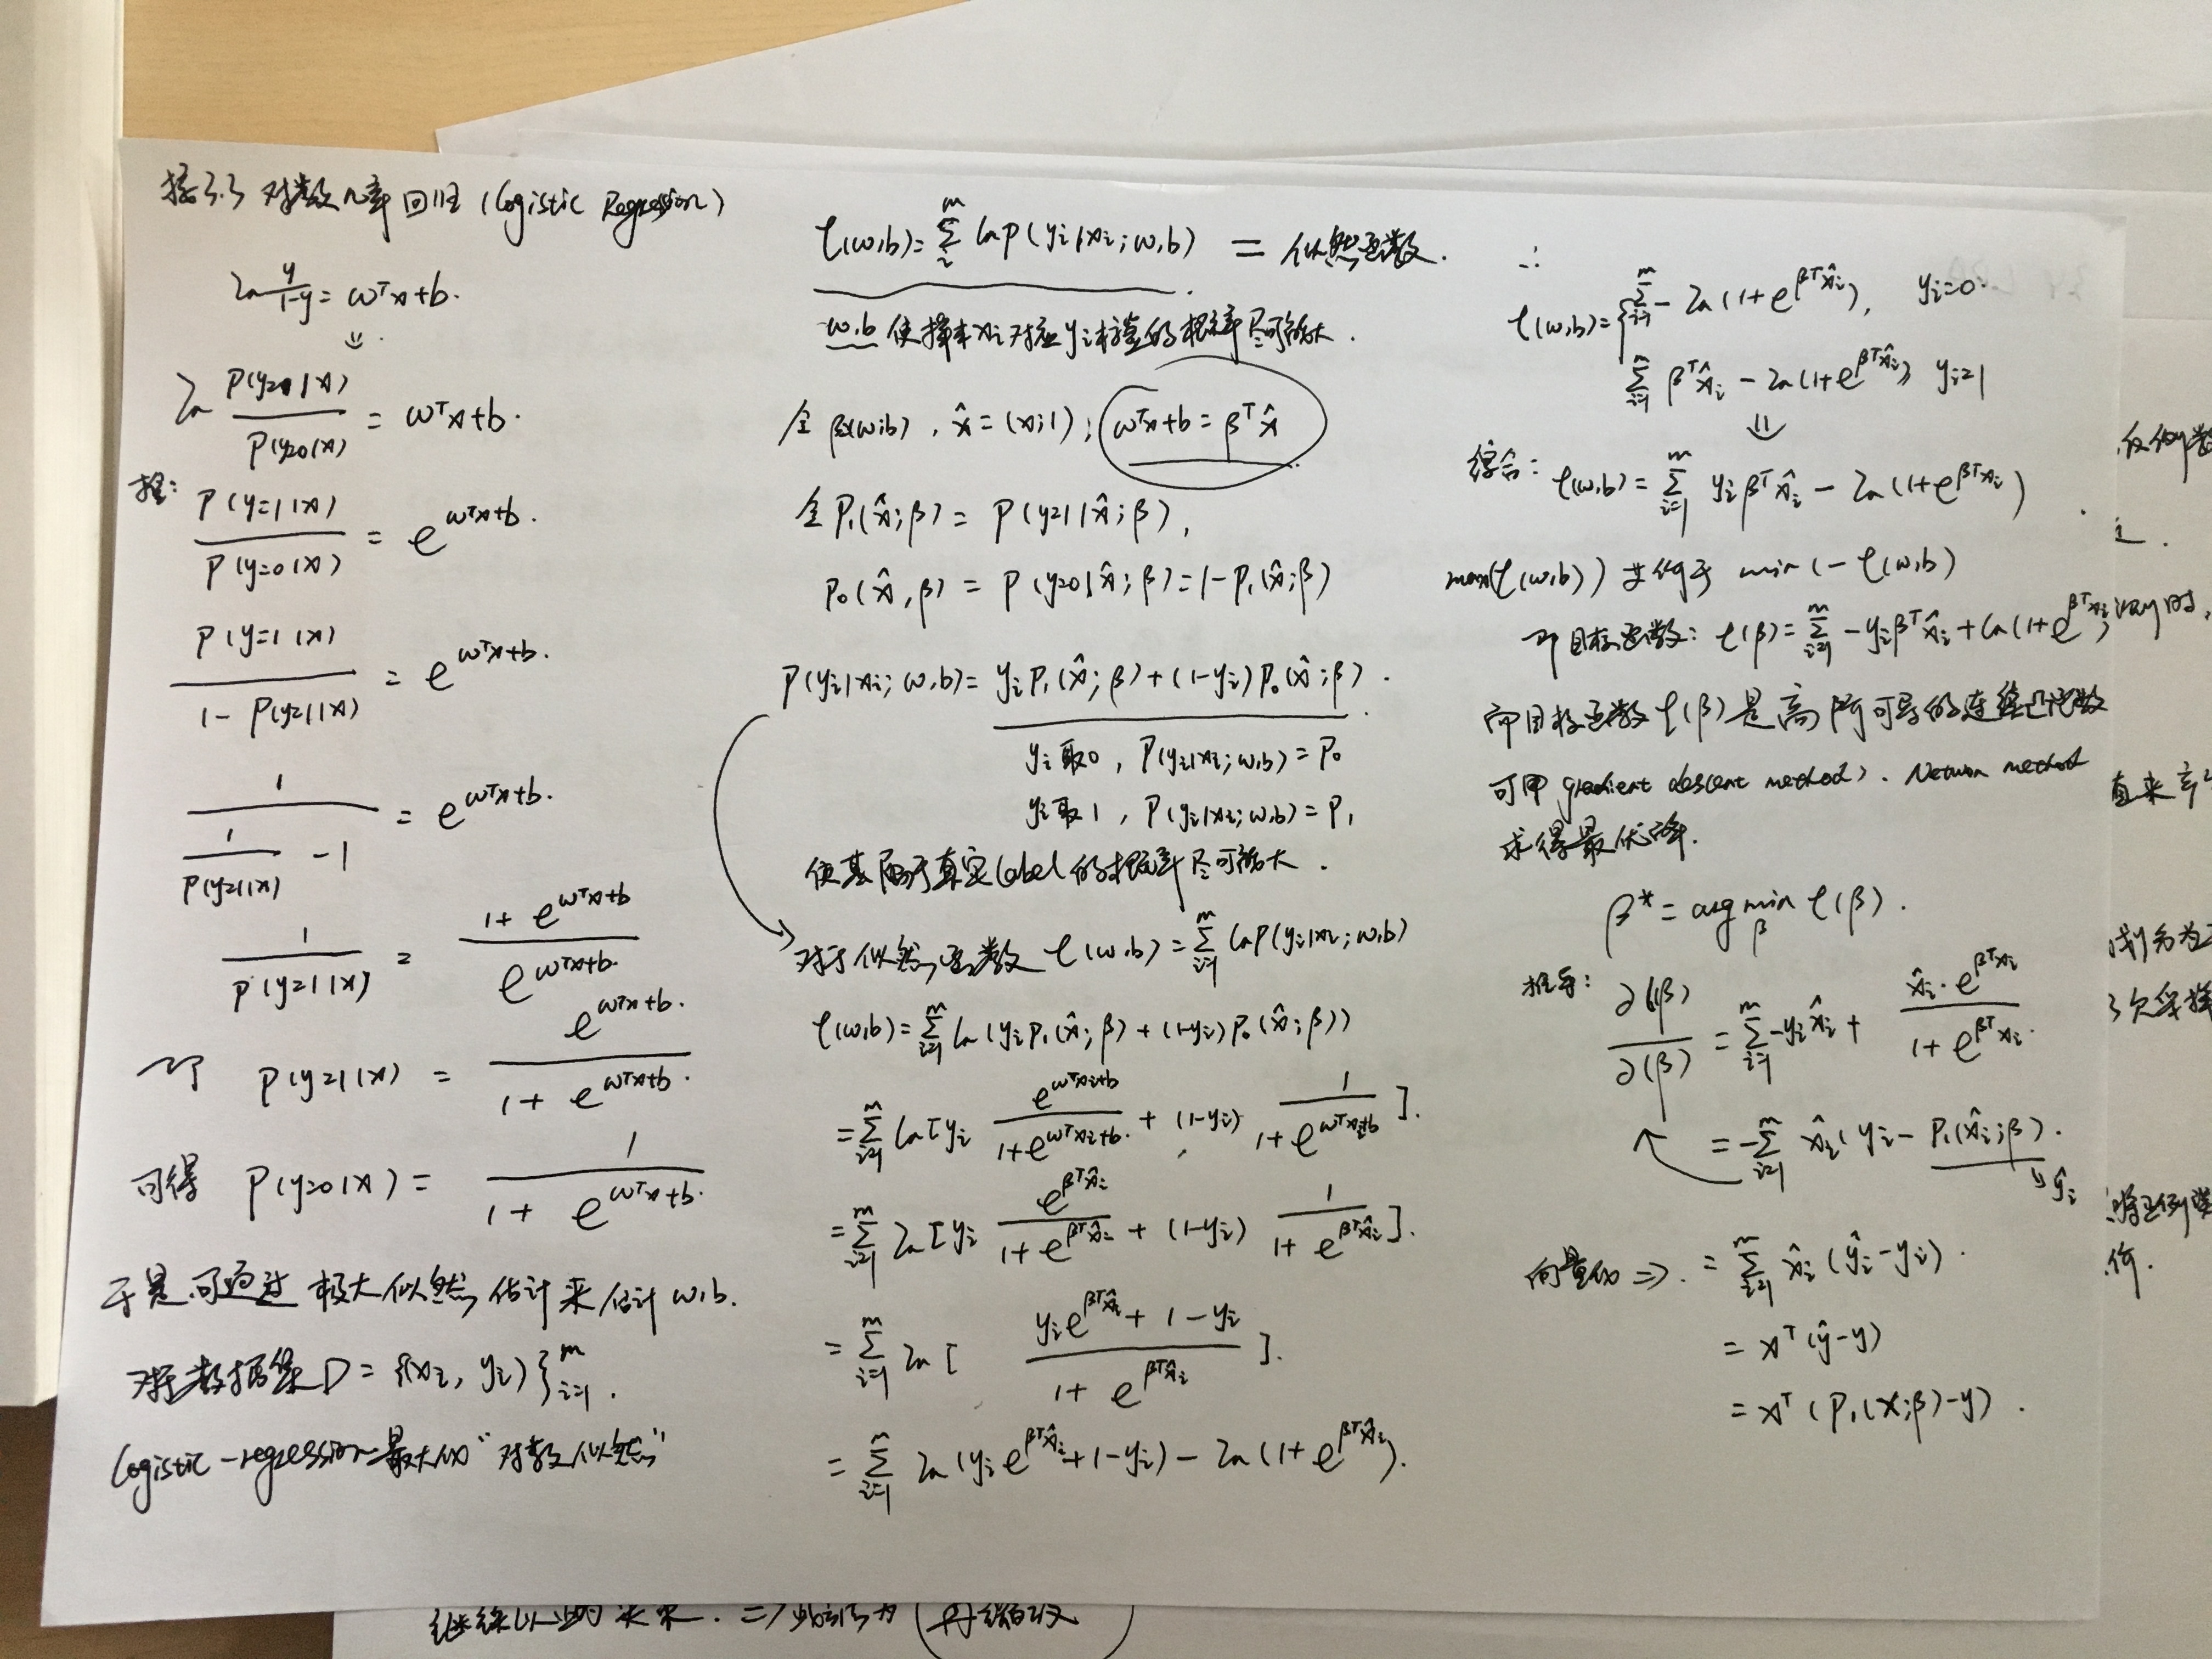 对数几率回归 (logistic Regression)
ln y/1-y = wᵀx+b.
⇓
ln P(y=1|x) / P(y=0|x) = wᵀx+b.
推: P(y=1|x) / P(y=0|x) = e^{wᵀx+b}.
P(y=1|x) / 1 - P(y=1|x) = e^{wᵀx+b}.
1 / (1/P(y=1|x) - 1) = e^{wᵀx+b}.
1 / P(y=1|x) = 1+e^{wᵀx+b} / e^{wᵀx+b}.
P(y=1|x) = e^{wᵀx+b} / 1+e^{wᵀx+b}.
可得 P(y=0|x) = 1 / 1+e^{wᵀx+b}.
于是可通过极大似然估计来估计 w,b.
数据集 D = {(xᵢ, yᵢ)}ᵐᵢ₌₁.
logistic-regression最大化“对数似然”
ℓ(w,b) = Σᵐᵢ ln P(yᵢ|xᵢ;w,b) = 似然函数.
w,b 使样本xᵢ对应yᵢ标签的概率尽可能大.
令 β=(w;b), x̂=(x;1); wᵀx+b = βᵀx̂
令 P₁(x̂;β) = P(y=1|x̂;β),
P₀(x̂,β) = P(y=0|x̂;β) = 1-P₁(x̂;β)
P(yᵢ|xᵢ;w,b) = yᵢP₁(x̂;β)+(1-yᵢ)P₀(x̂;β).
yᵢ取0, P(yᵢ|xᵢ;w,b) = P₀
yᵢ取1, P(yᵢ|xᵢ;w,b) = P₁
使其属于真实label的概率尽可能大.
对于似然函数 ℓ(w,b) = Σᵐᵢ₌₁ ln P(yᵢ|xᵢ;w,b)
ℓ(w,b) = Σᵐᵢ₌₁ ln(yᵢP₁(x̂;β)+(1-yᵢ)P₀(x̂;β))
= Σᵐᵢ₌₁ ln[yᵢ e^{wᵀxᵢ+b} / 1+e^{wᵀxᵢ+b} + (1-yᵢ), 1 / 1+e^{wᵀxᵢ+b}].
= Σᵐᵢ₌₁ ln[yᵢ e^{βᵀx̂ᵢ} / 1+e^{βᵀx̂ᵢ} + (1-yᵢ) 1 / 1+e^{βᵀx̂ᵢ}].
= Σᵐᵢ₌₁ ln[ yᵢe^{βᵀx̂ᵢ}+1-yᵢ / 1+e^{βᵀx̂ᵢ} ].
= Σᵐᵢ₌₁ ln(yᵢe^{βᵀx̂ᵢ}+1-yᵢ) - ln(1+e^{βᵀx̂ᵢ}).
∴
ℓ(w,b) = { Σᵐᵢ₌₁ - ln(1+e^{βᵀx̂ᵢ}), yᵢ=0.
Σᵐᵢ₌₁ βᵀx̂ᵢ - ln(1+e^{βᵀx̂ᵢ}) yᵢ=1
⇓
综合: ℓ(w,b) = Σᵐᵢ₌₁ yᵢβᵀx̂ᵢ - ln(1+e^{βᵀx̂ᵢ})
max(ℓ(w,b)) 等价于 min(-ℓ(w,b)
目标函数: ℓ(β) = Σᵐᵢ₌₁ -yᵢβᵀx̂ᵢ+ln(1+e^{βᵀx̂ᵢ})
目标函数 ℓ(β) 是高阶可导的连续凸函数
可用 gradient descent method、Newton method
求得最优解.
β* = arg min_β ℓ(β).
推导: ∂ℓ(β) / ∂(β) = Σᵐᵢ₌₁ -yᵢx̂ᵢ + x̂ᵢ·e^{βᵀx̂ᵢ} / 1+e^{βᵀx̂ᵢ}.
= -Σᵐᵢ₌₁ x̂ᵢ(yᵢ - P₁(x̂ᵢ;β)).
ŷᵢ
向量化 ⇒ = Σᵐᵢ₌₁ x̂ᵢ(ŷᵢ-yᵢ).
= xᵀ(ŷ-y)
= xᵀ(P₁(x;β)-y).